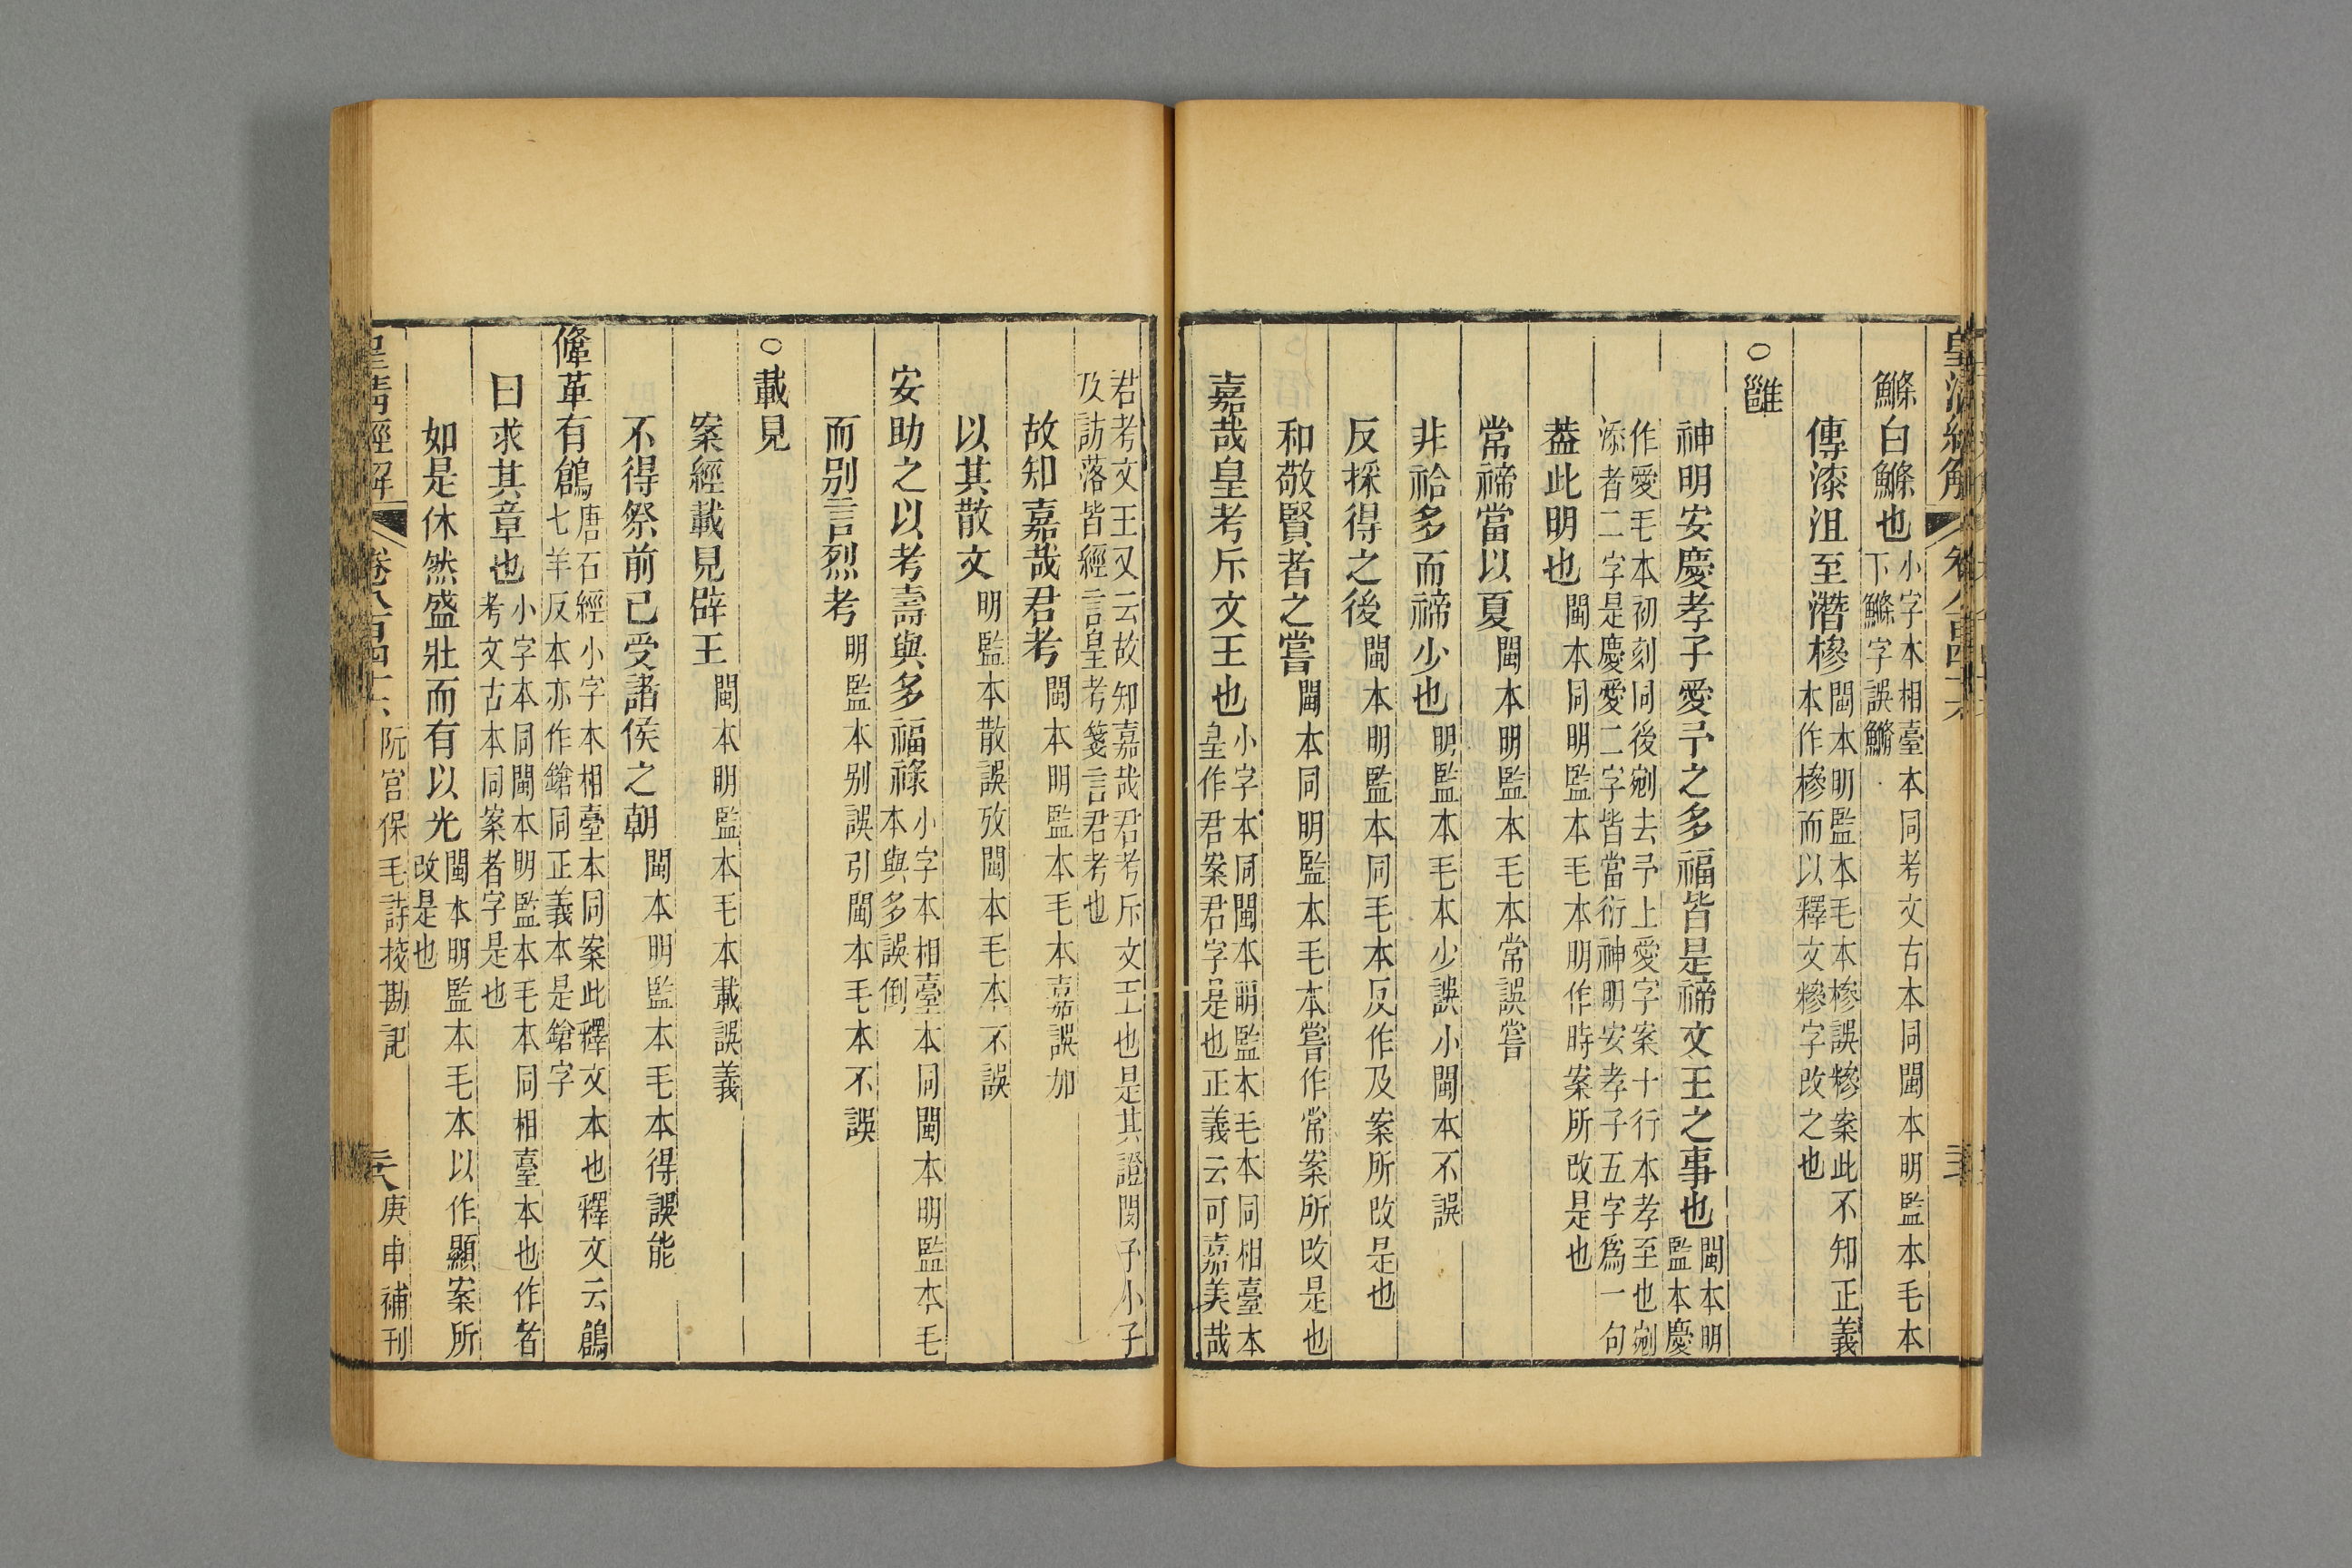 鰷白鰷也小字本相臺本同考文古本同閩本明監本毛本
下鰷字誤鱂
傳漆沮至潛糝閩本明監本毛本糝誤糝案此不知正義
本作槮而以釋文糝字改之也
○雝
神明安慶孝子愛予之多福皆是禘文王之事也閩本明
監本慶
作愛毛本初刻同後剜去予上愛字案十行本孝至也剜
添者二字是慶愛二字皆當衍神明安孝子五字爲一句
葢此明也閩本同明監本毛本明作時案所改是也
常禘當以夏閩本明監本毛本常誤嘗
非祫多而禘少也明監本毛本少誤小閩本不誤
反採得之後閩本明監本同毛本反作及案所改是也
和敬賢者之嘗閩本同明監本毛本嘗作常案所改是也
嘉哉皇考斥文王也小字本同閩本明監本毛本同相臺本
皇作君案君字是也正義云可嘉美哉
君考文王又云故知嘉哉君考斥文王也是其證閔予小子
及訪落皆經言皇考箋言君考也
故知嘉哉君考閩本明監本毛本嘉誤加
以其散文明監本散誤攷閩本毛本不誤
安助之以考壽與多福祿小字本相臺本同閩本明監本毛
本與多誤倒
而别言烈考明監本别誤引閩本毛本不誤
○載見
案經載見辟王閩本明監本毛本載誤義
不得祭前已受諸侯之朝閩本明監本毛本得誤能
鞗革有鶬唐石經小字本相臺本同案此釋文本也釋文云鶬
七羊反本亦作鎗同正義本是鎗字
曰求其章也小字本同閩本明監本毛本同相臺本也作者
考文古本同案者字是也
如是休然盛壯而有以光閩本明監本毛本以作顯案所
改是也
皇清經解 卷八百四十六 阮宮保毛詩挍勘記 庚申補刊